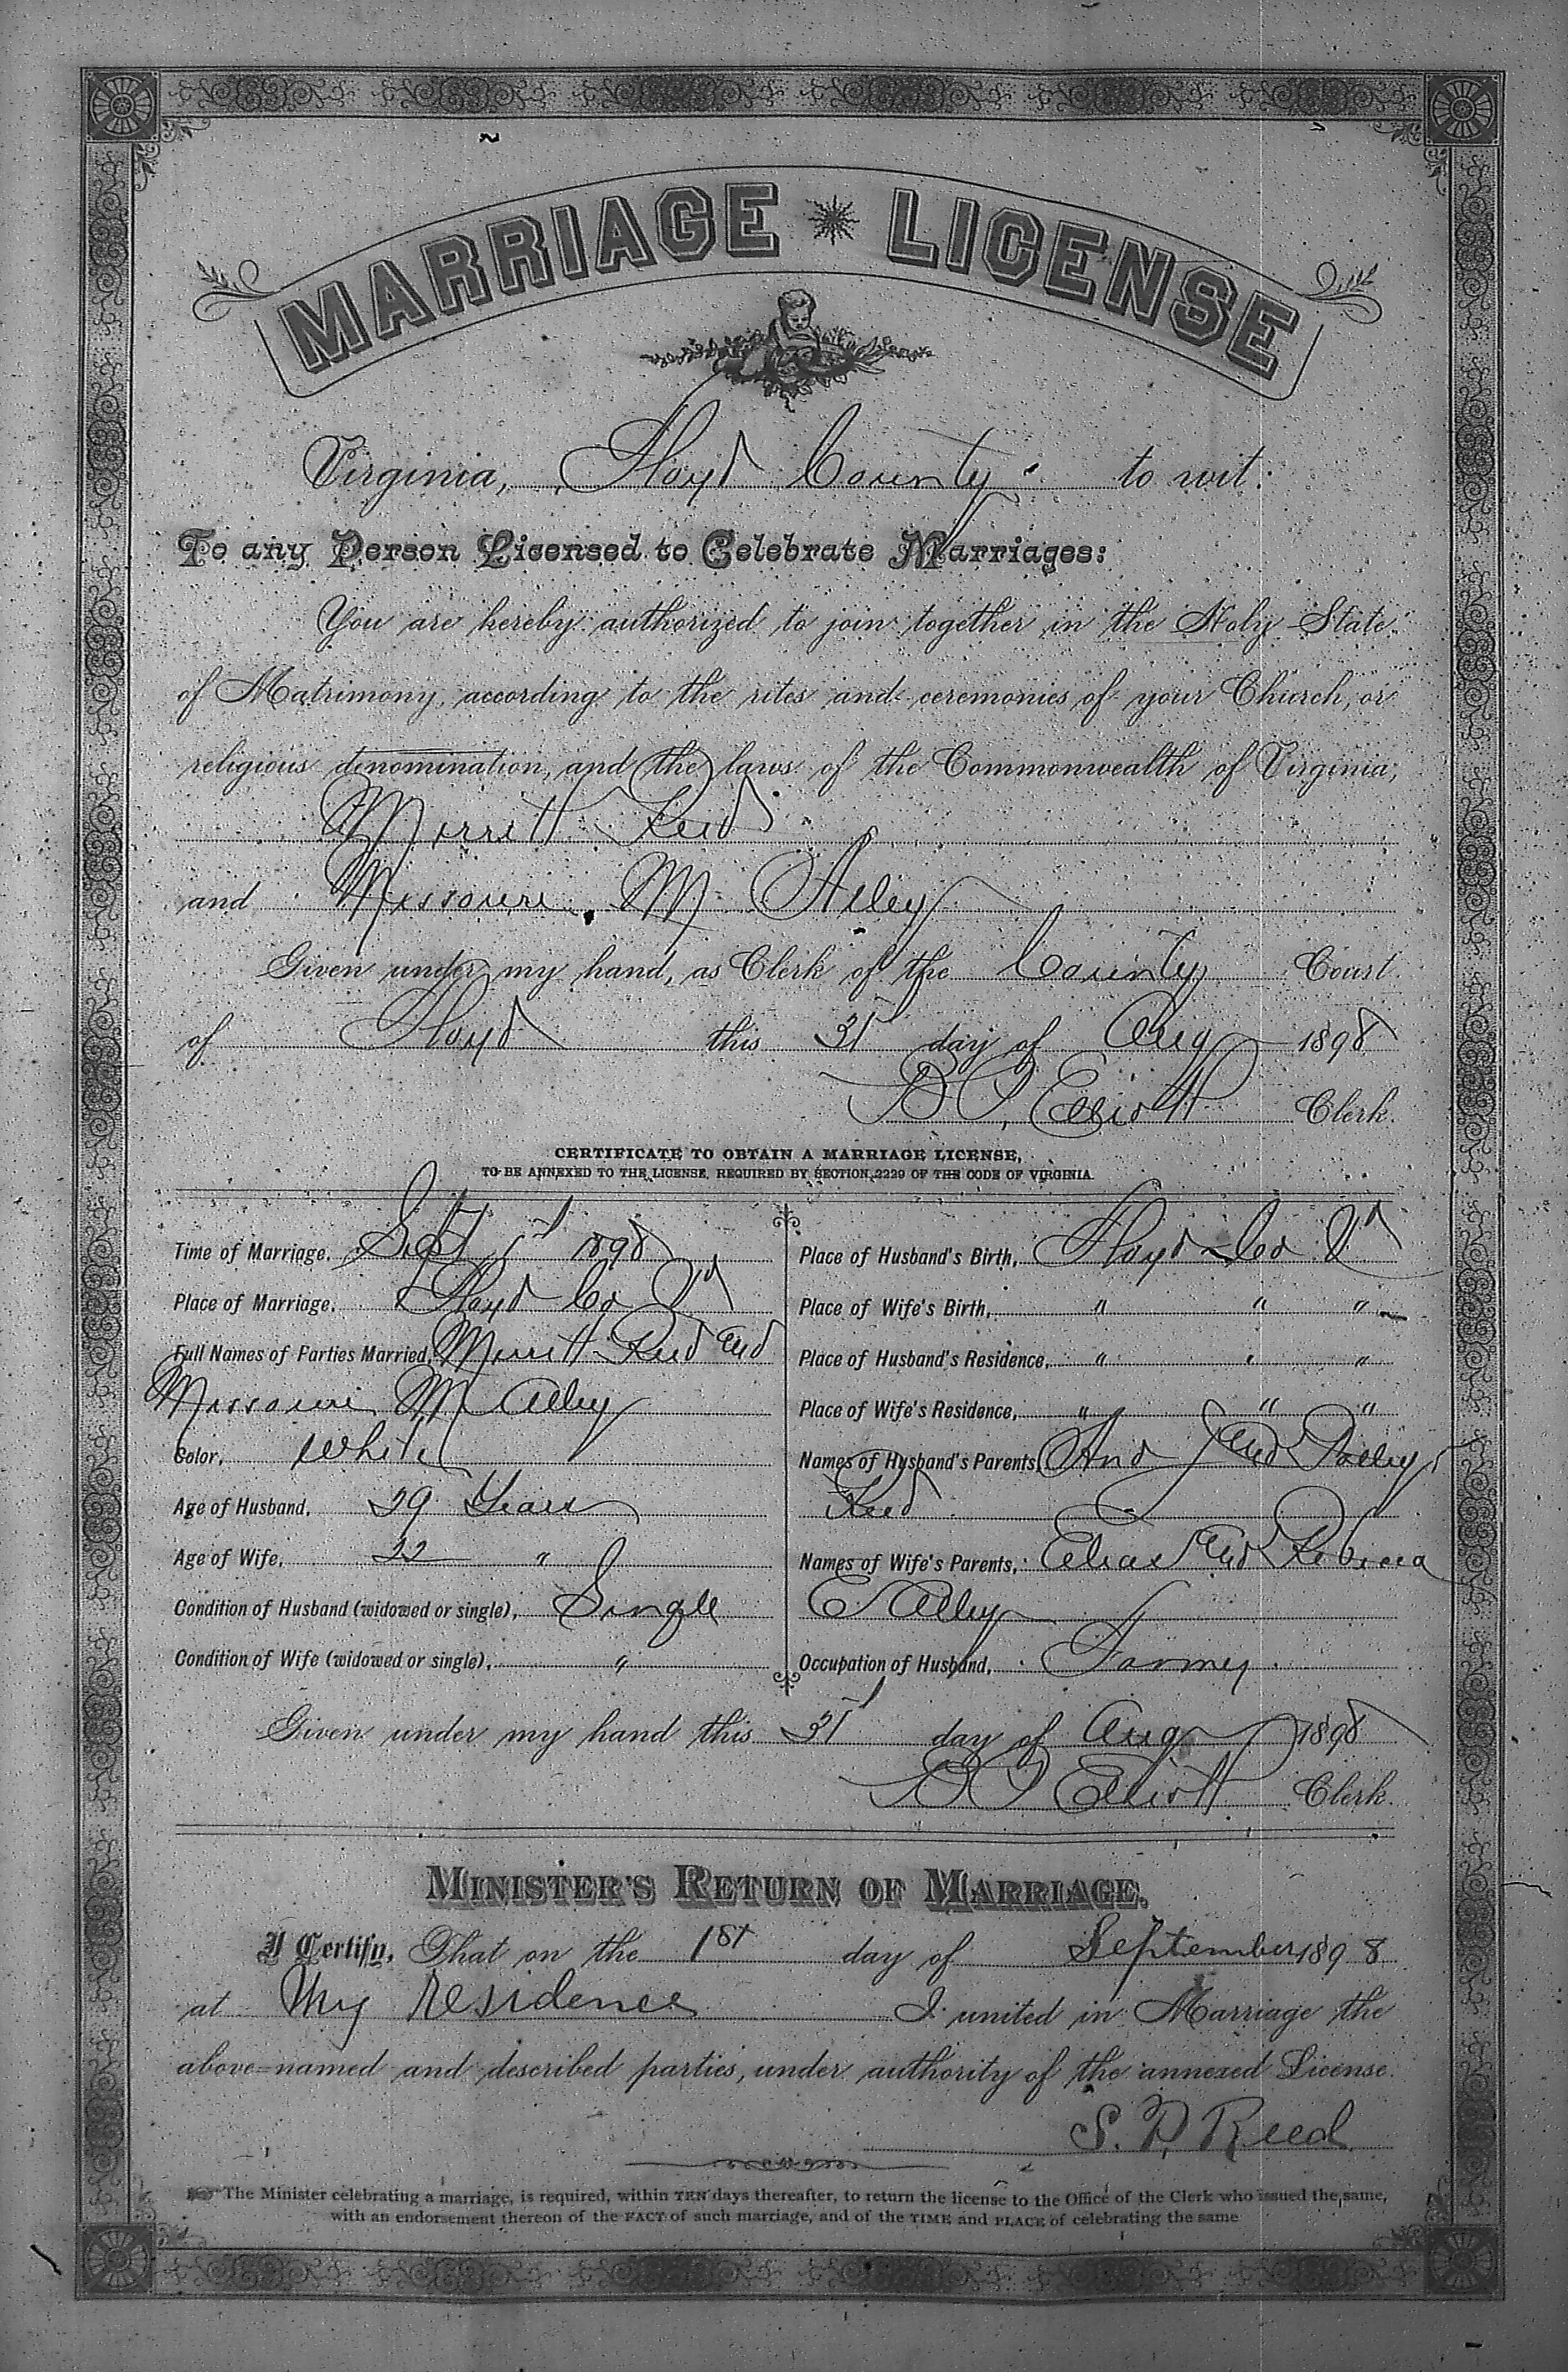 MARRIAGE LICENSE
Virginia, Floyd County to wit:
To any Person Licensed to Celebrate Marriages:
You are hereby authorized to join together in the Holy State
of Matrimony, according to the rites and ceremonies of your Church, or
religious denomination, and the laws of the Commonwealth of Virginia,
Merritt Reed
and Missouri M Alley
Given under my hand, as Clerk of the County Court
of Floyd this 31st day of Aug 1898
Elliott Clerk.
CERTIFICATE TO OBTAIN A MARRIAGE LICENSE,
TO BE ANNEXED TO THE LICENSE, REQUIRED BY SECTION 2229 OF THE CODE OF VIRGINIA.
Time of Marriage, Sept 1st 1898
Place of Marriage, Floyd Co Va
Full Names of Parties Married, Merritt Reed and
Missouri M Alley
Color, White
Age of Husband, 29 Years
Age of Wife, 22 "
Condition of Husband (widowed or single), Single
Condition of Wife (widowed or single), "
Place of Husband's Birth, Floyd Co Va
Place of Wife's Birth, " " "
Place of Husband's Residence, " " "
Place of Wife's Residence, " " "
Names of Husband's Parents, And J and Polley
Reed
Names of Wife's Parents, Elias and Rebecca
E Alley
Occupation of Husband, Farmer
Given under my hand this 31st day of Aug 1898
Elliott Clerk.
MINISTER'S RETURN OF MARRIAGE.
I Certify, That on the 1st day of September 1898
at My Residence I united in Marriage the
above-named and described parties, under authority of the annexed License.
S. P. Reed
The Minister celebrating a marriage, is required, within TEN days thereafter, to return the license to the Office of the Clerk who issued the same,
with an endorsement thereon of the FACT of such marriage, and of the TIME and PLACE of celebrating the same